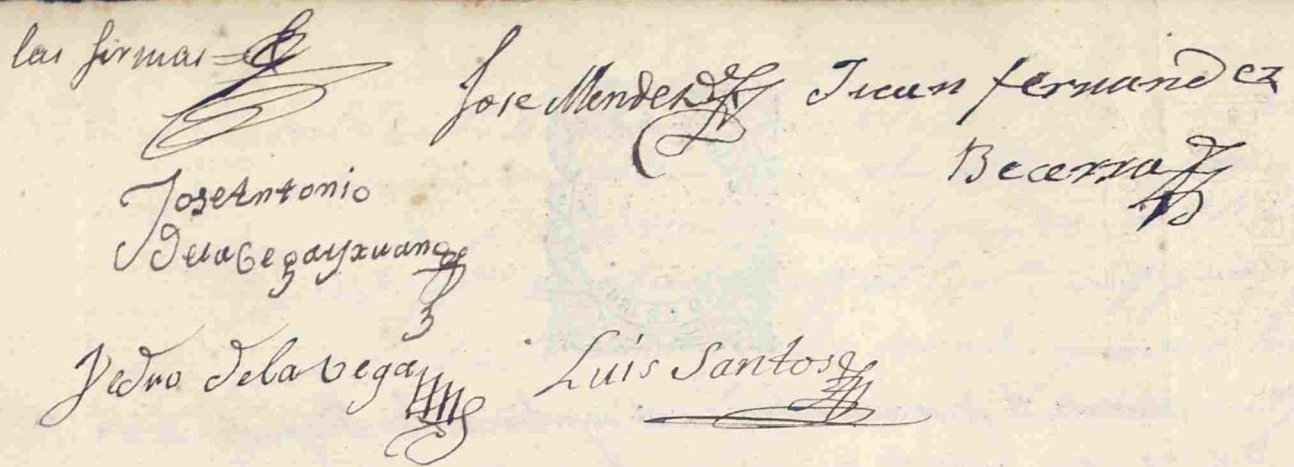 las firmas=
Jose Mendez Juan fernandez
Becerra
Jose Antonio
Delabega y xuan
Pedro Delavega
Luis Santos